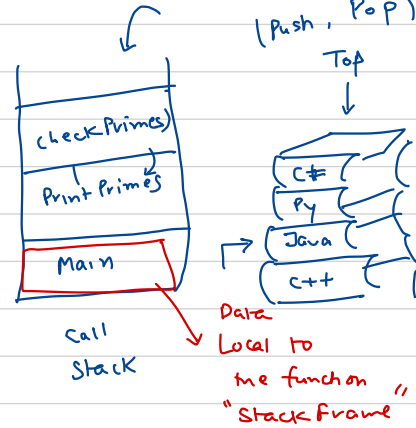 (Push, Pop)
Top
checkPrimes)
PrintPrimes
Main
Call
Stack
C#
Py
Java
C++
Data
Local to
the function
"Stack Frame"